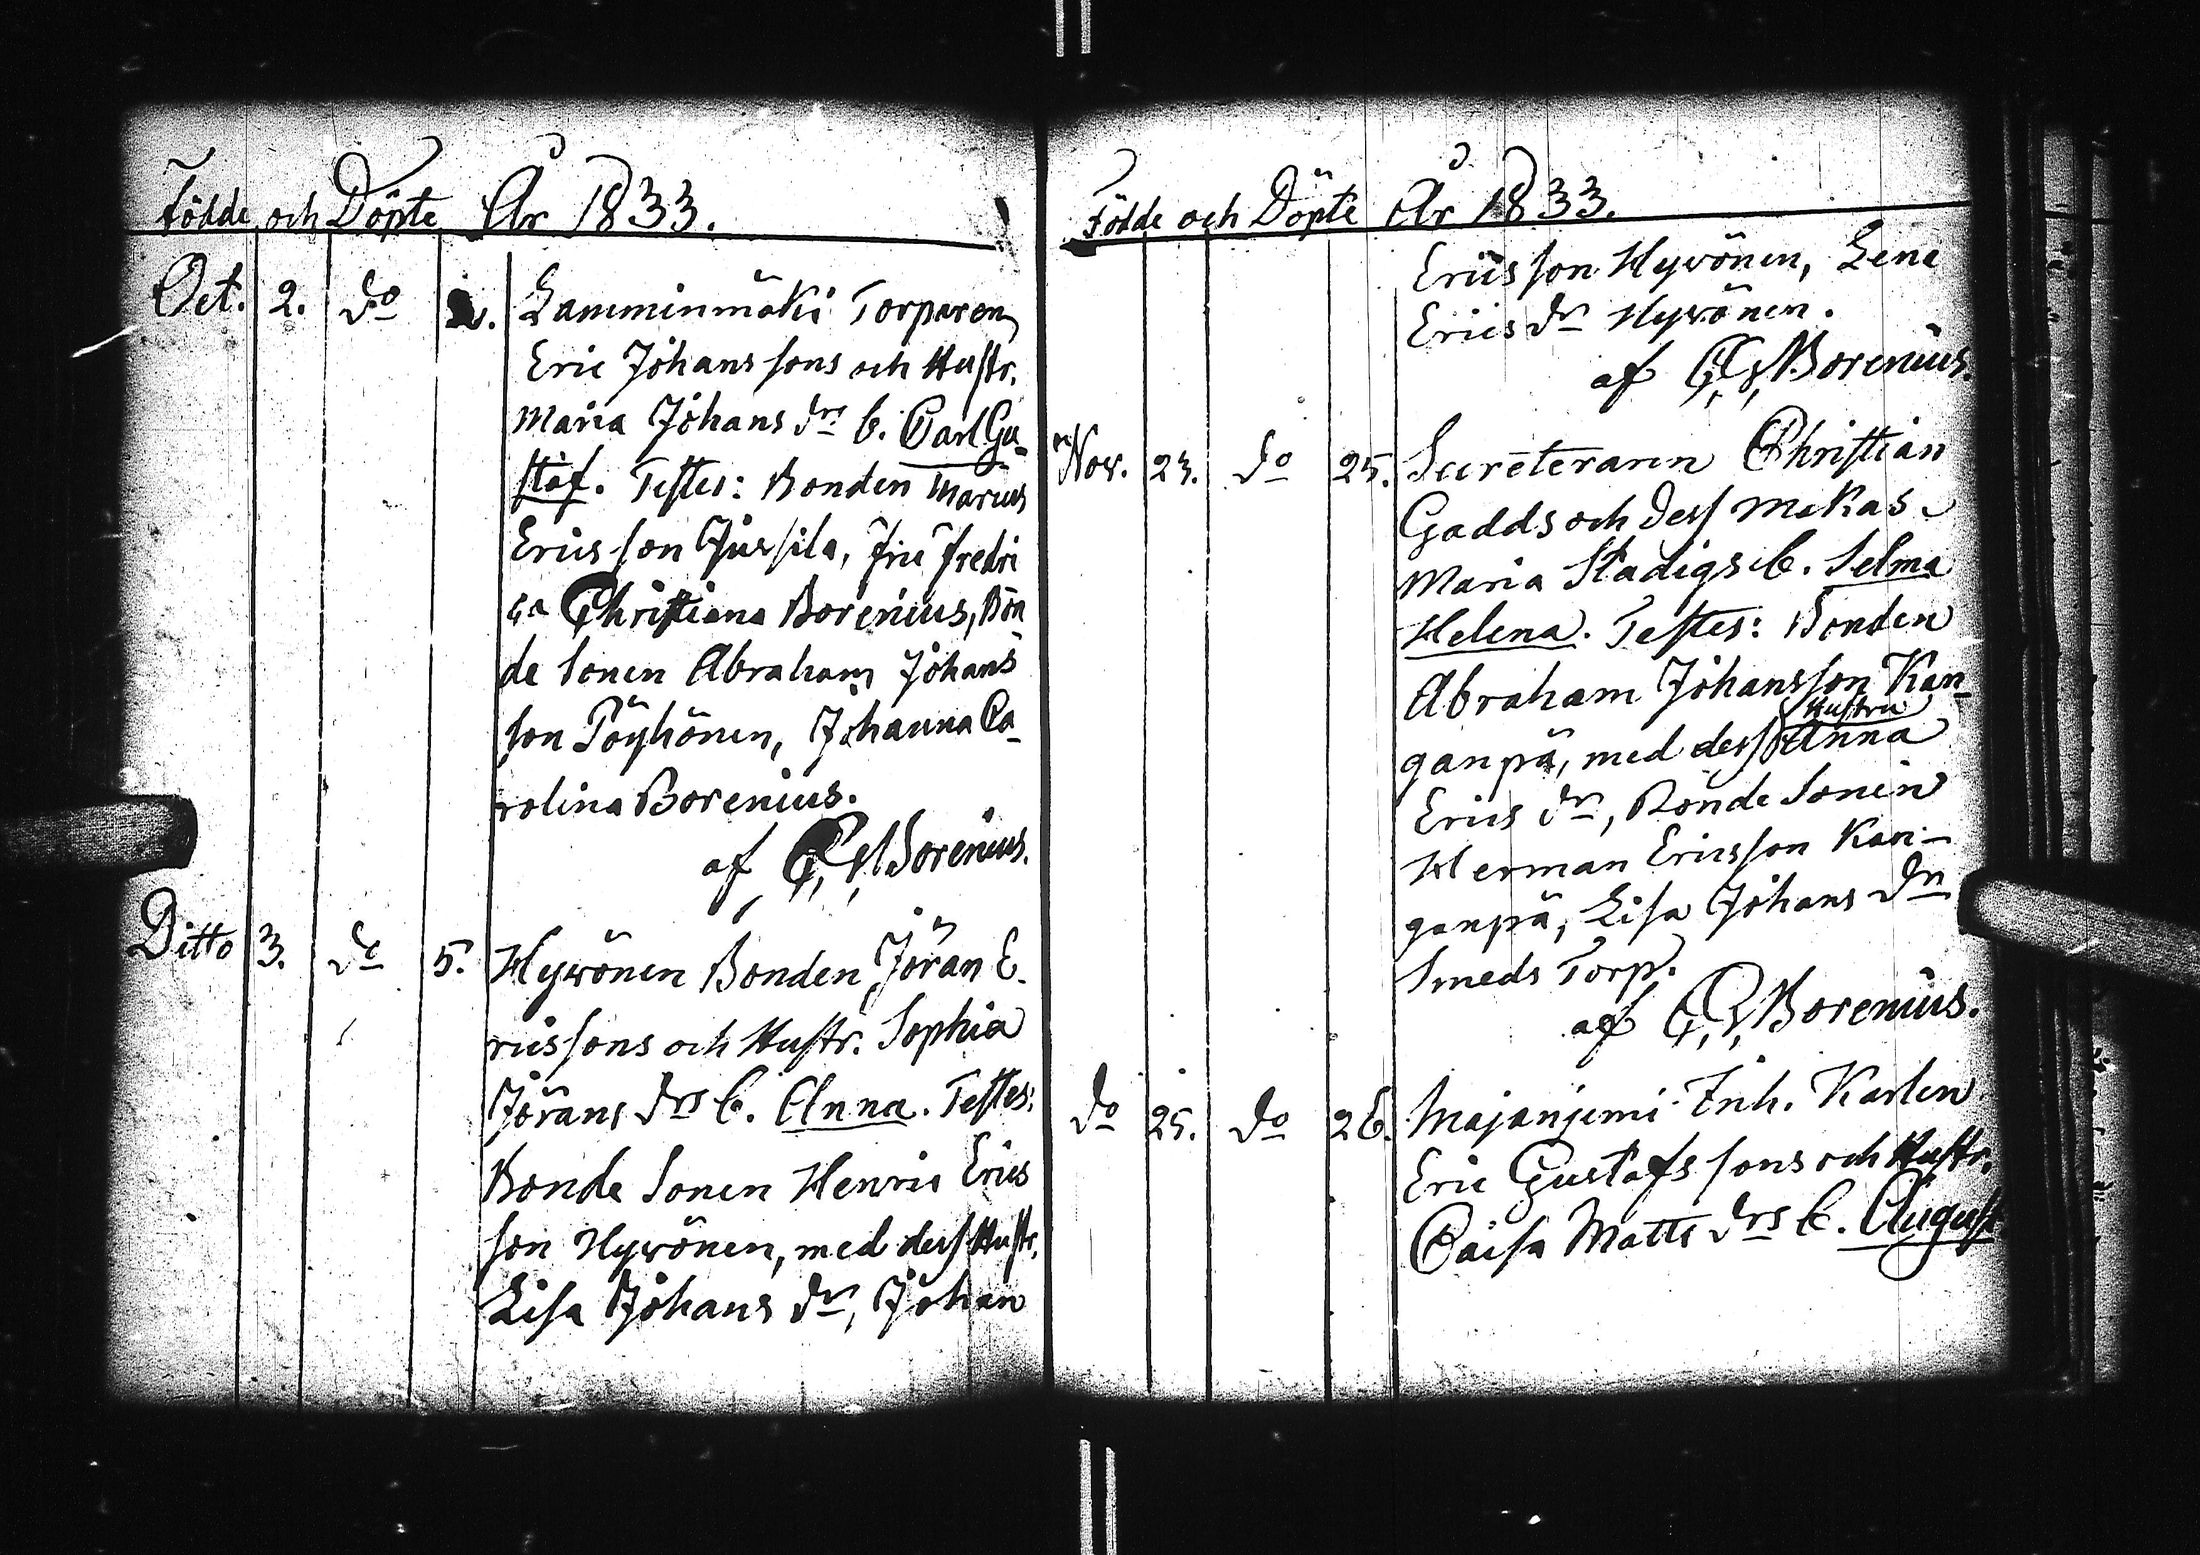 Födde och Döpte År 1833.
Oct. 2. do Lamminmäki Torparen
Eric Johanssons och Hustr.
Maria Johans drs b. Carl Gu-
staf. Testes: Bonden Marcus
Ericsson Jussila, fru Fredri
ca Christiana Borenius, Bon
de Sonen Abraham Johans
son Pöyhönen, Johanna Ca-
rolina Borenius.
af Borenius.
Ditto 3. do 5. Hyvönen Bonden Jöran E.
ricssons och Hustr. Sophia
Jörans drs b. Anna. Testes:
Bonde Sonen Henric Erics
son Hyvönen, med dess Hustr.
Lisa Johans dr, Johan
Födde och Döpte År 1833.
Ericsson Hyvönen, Lena
Erics dr Hyvönen.
af Borenius.
Nov. 23. do 25. Secreteraren Christian
Gadds och dess makas
Maria Stadigs b. Selma
Helena. Testes: Bonden
Abraham Johansson Kan-
ganpä, med dess Hustru Anna
Erics dr, Bonde Sonen
Herman Ericsson Kan-
ganpä, Lisa Johans dr
Smeds Torp.
af Borenius.
do 25. do 26. Majaniemi Inh. Karlen
Eric Gustafssons och Hustr.
Caisa Matts drs b. August